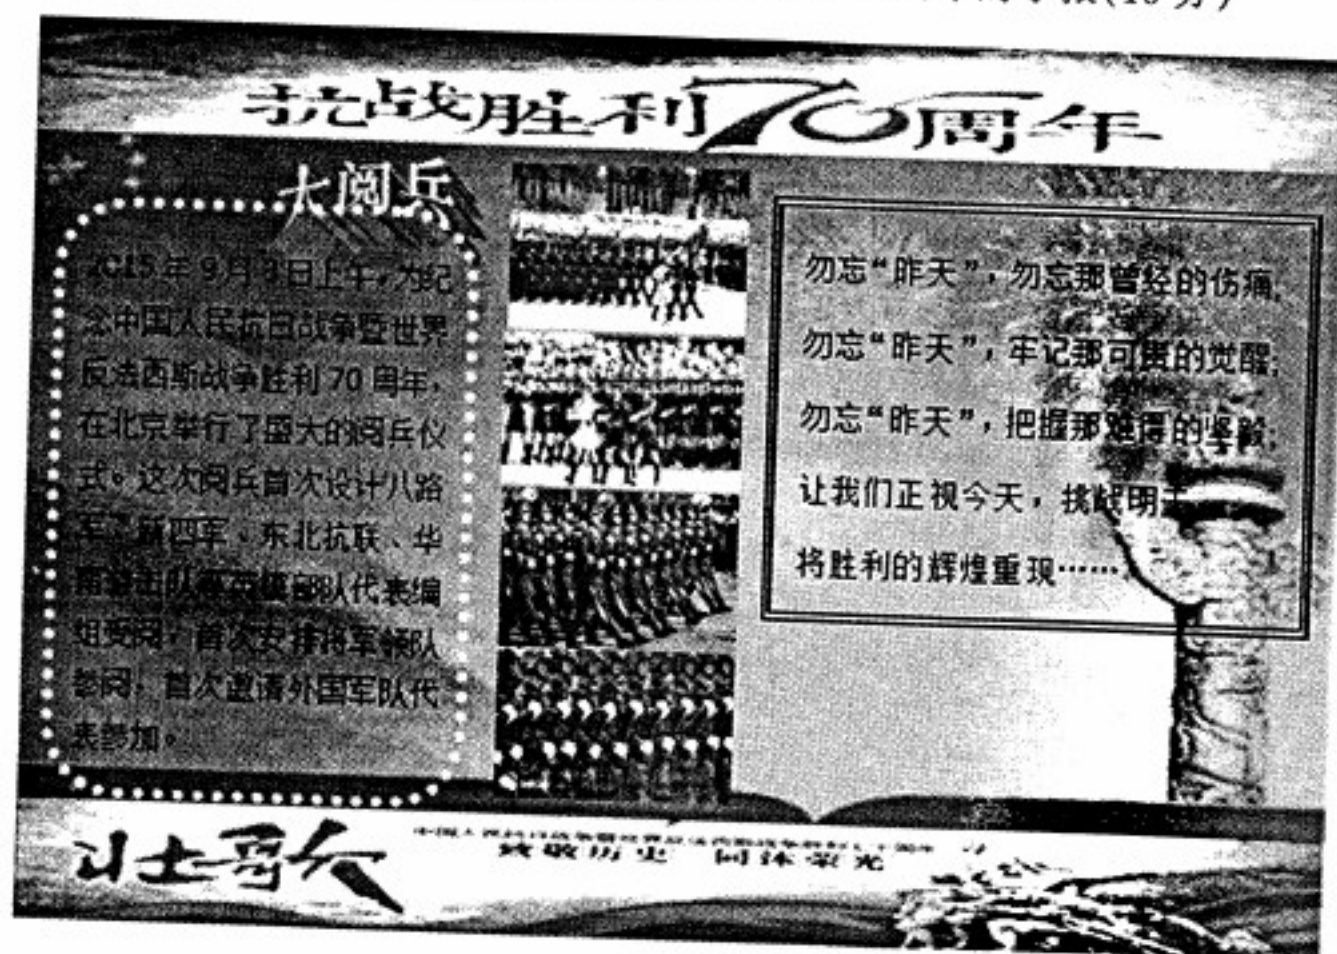 报(10分)
抗战胜利70周年
大阅兵
2015年9月3日上午,为纪
念中国人民抗日战争暨世界
反法西斯战争胜利70周年,
在北京举行了盛大的阅兵仪
式。这次阅兵首次设计八路
军、新四军、东北抗联、华
南游击队等英模部队代表编
组受阅,首次安排将军领队
参阅,首次邀请外国军队代
表参加。
勿忘“昨天”,勿忘那曾经的伤痛;
勿忘“昨天”,牢记那可贵的觉醒;
勿忘“昨天”,把握那难得的坚毅;
让我们正视今天,挑战明天
将胜利的辉煌重现……
壮歌
中国人民抗日战争暨世界反法西斯战争胜利七十周年
致敬历史 同沐荣光